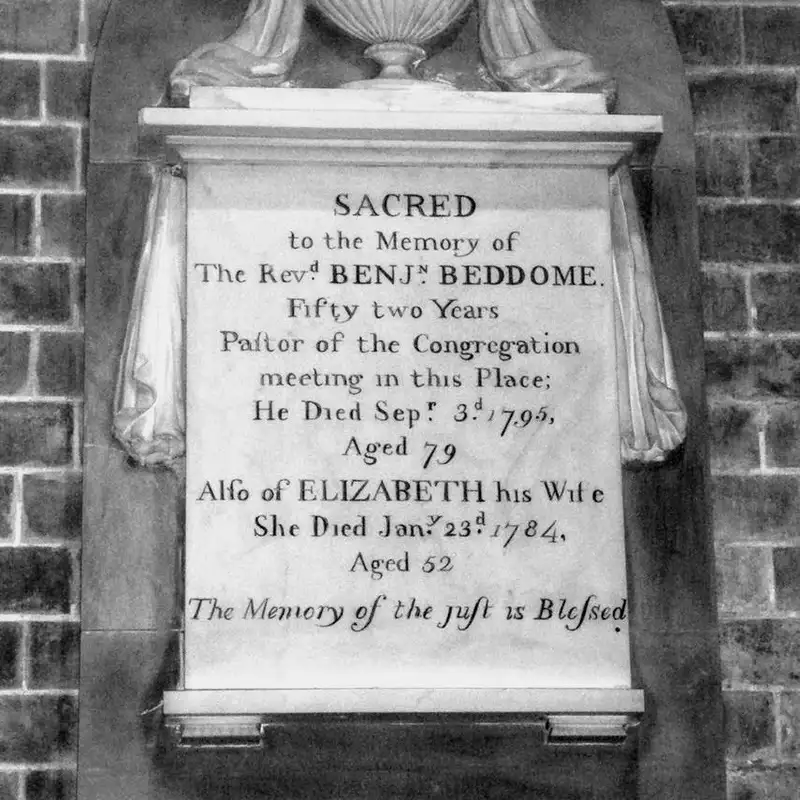 SACRED
to the Memory of
The Revᵈ. BENJᴺ. BEDDOME.
Fifty two Years
Paſtor of the Congregation
meeting in this Place;
He Died Sepʳ. 3ᵈ. 1795,
Aged 79
Alſo of ELIZABETH his Wife
She Died Janʸ. 23ᵈ. 1784,
Aged 52
The Memory of the juſt is Bleſsed.